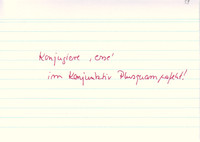 Konjugiere 'esse'
im Konjunktiv Plusquamperfekt!